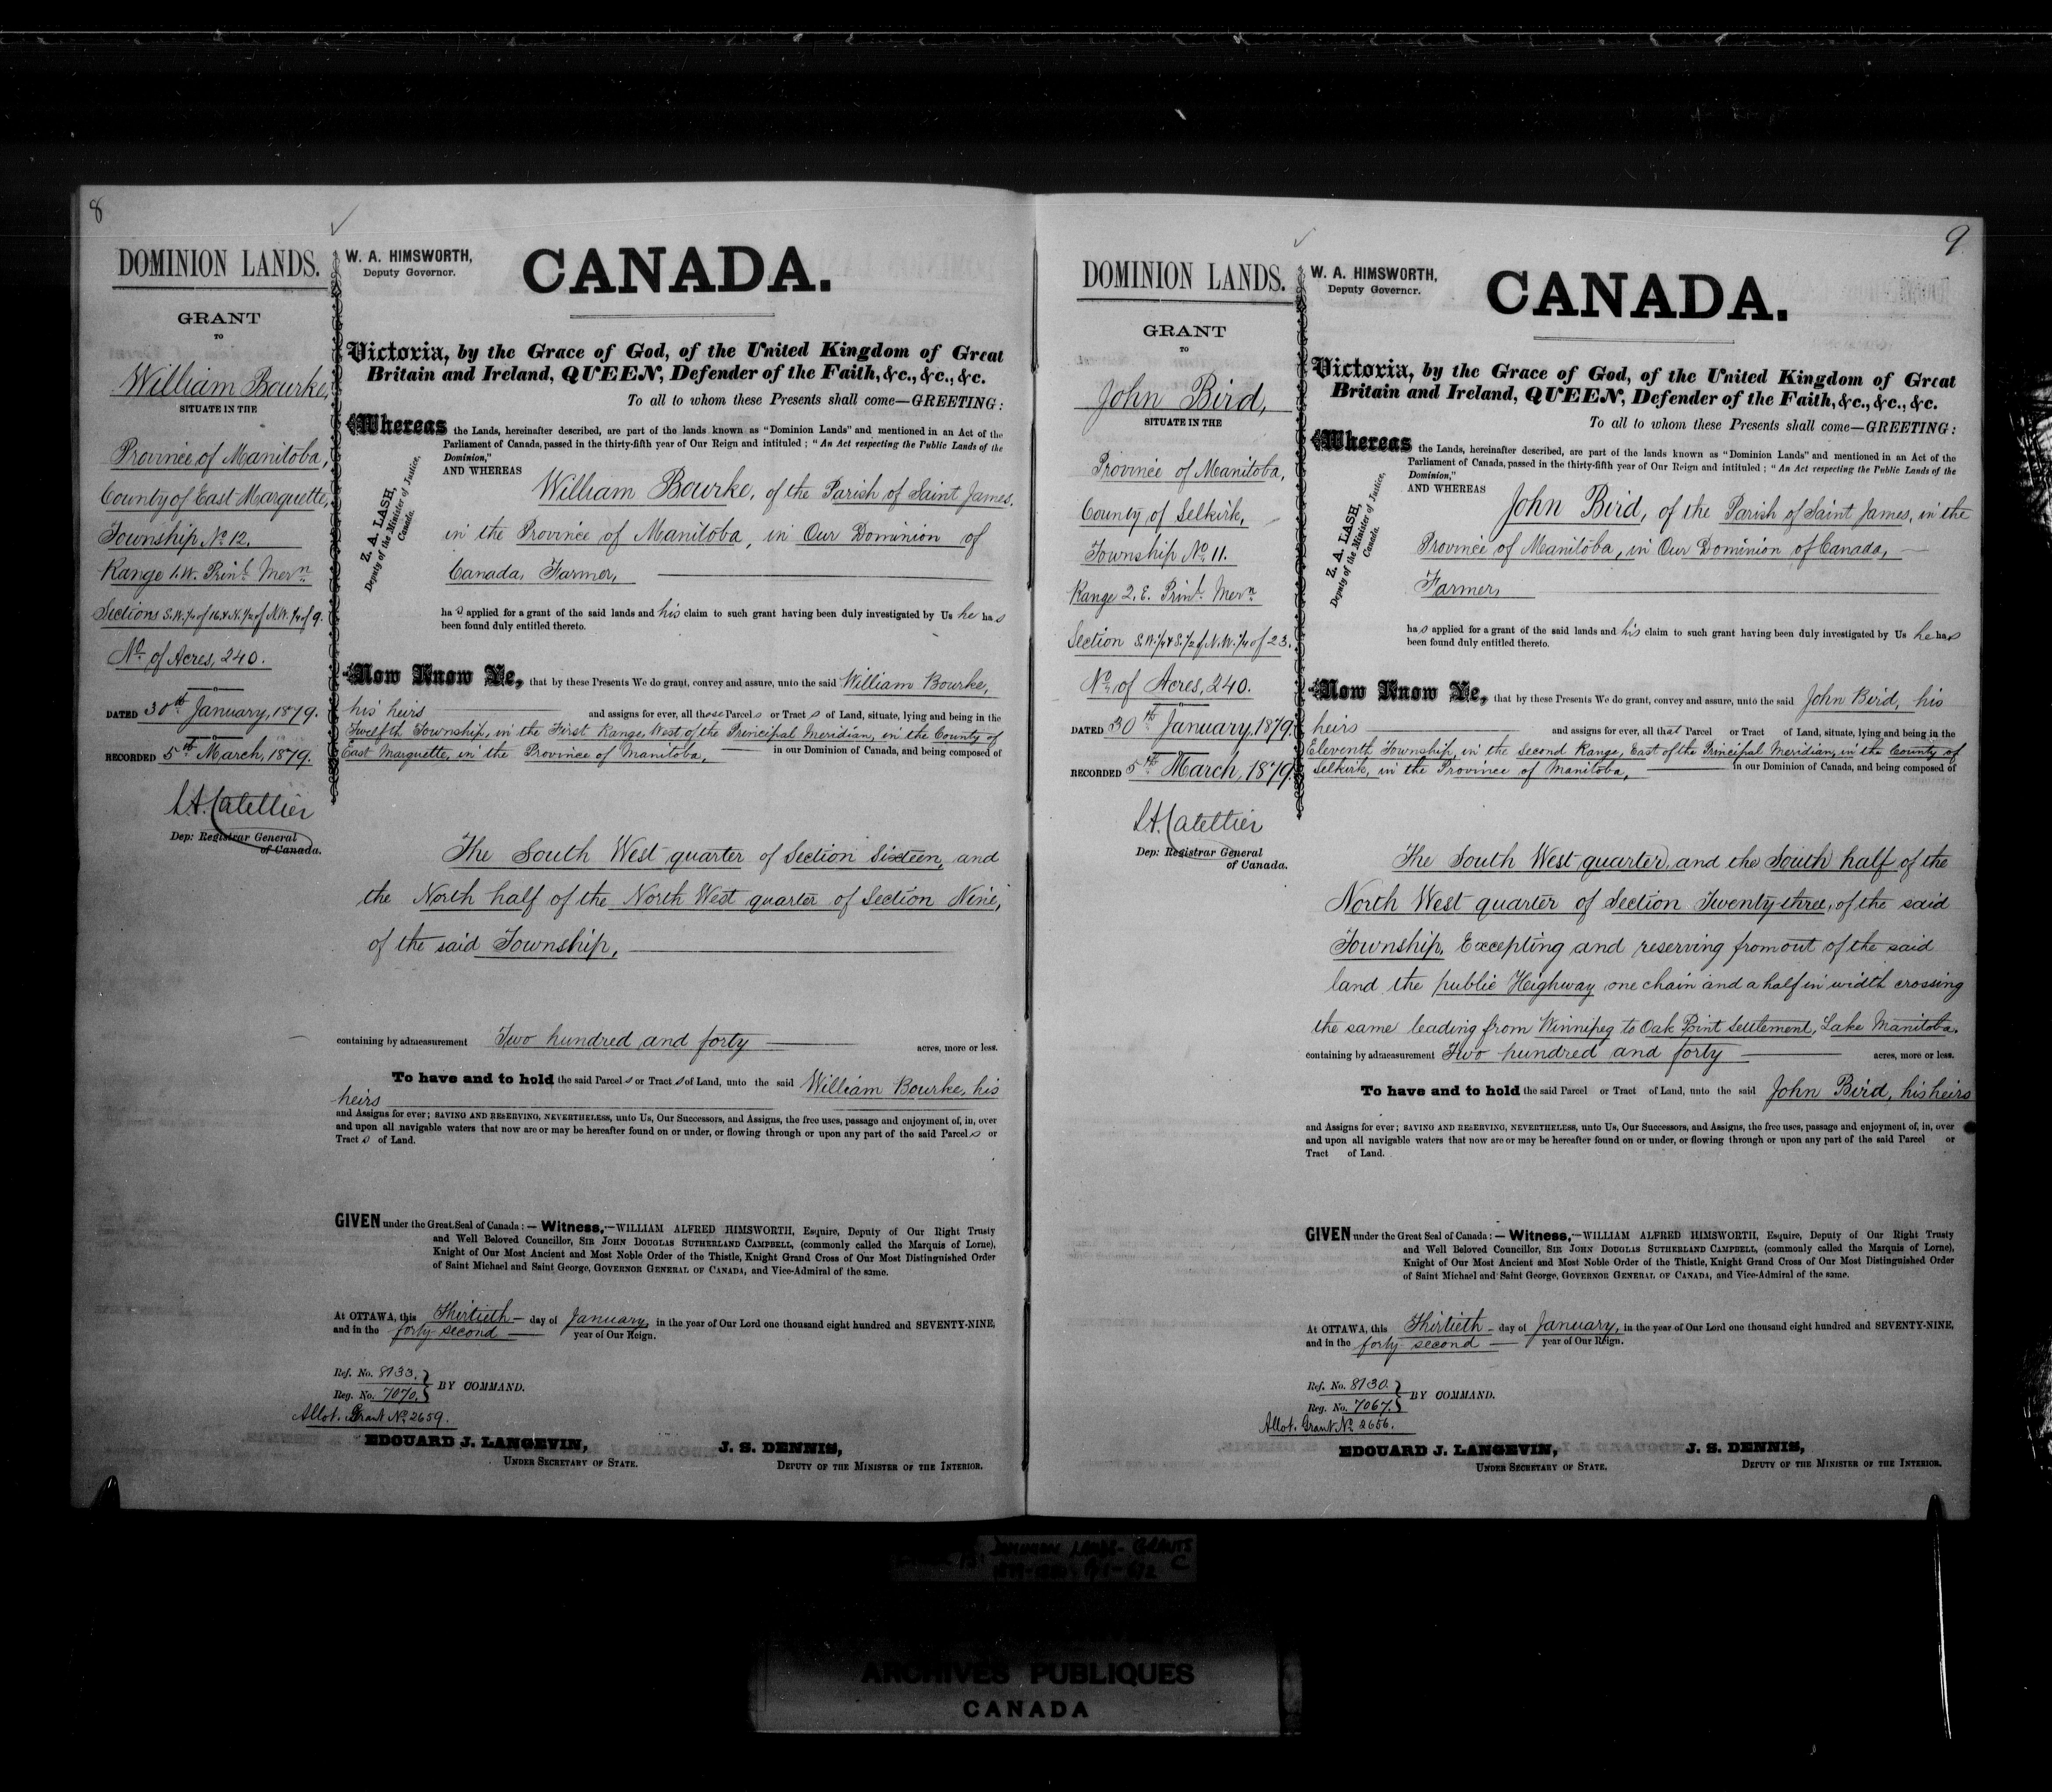 8
DOMINION LANDS.
GRANT
TO
William Bourke,
SITUATE IN THE
Province of Manitoba,
County of East Marquette,
Township No. 12.
Range 1. W. Prinl. Mern.
Sections S.W. 1/4 of 16 & N. 1/2 of N.W. 1/4 of 9.
No. of Acres, 240.
DATED 30th January, 1879.
RECORDED 5th March, 1879.
L.A. Catellier
Dep: Registrar General
of Canada.
W. A. HIMSWORTH,
Deputy Governor.
CANADA.
Victoria, by the Grace of God, of the United Kingdom of Great
Britain and Ireland, QUEEN, Defender of the Faith, &c., &c., &c.
To all to whom these Presents shall come—GREETING:
Whereas the Lands, hereinafter described, are part of the lands known as "Dominion Lands" and mentioned in an Act of the
Parliament of Canada, passed in the thirty-fifth year of Our Reign and intituled; "An Act respecting the Public Lands of the
Dominion,"
Z. A. LASH,
Deputy of the Minister of Justice,
Canada.
AND WHEREAS
William Bourke, of the Parish of Saint James,
in the Province of Manitoba, in Our Dominion of
Canada, Farmer,
has applied for a grant of the said lands and his claim to such grant having been duly investigated by Us he has
been found duly entitled thereto.
Now Know Ye, that by these Presents We do grant, convey and assure, unto the said William Bourke,
his heirs and assigns for ever, all those Parcels or Tracts of Land, situate, lying and being in the
Twelfth Township, in the First Range, West of the Principal Meridian, in the County of
East Marquette, in the Province of Manitoba, in our Dominion of Canada, and being composed of
The South West quarter of Section Sixteen, and
the North half of the North West quarter of Section Nine,
of the said Township,
containing by admeasurement Two hundred and forty acres, more or less.
To have and to hold the said Parcels or Tracts of Land, unto the said William Bourke, his
heirs
and Assigns for ever; SAVING AND RESERVING, NEVERTHELESS, unto Us, Our Successors, and Assigns, the free uses, passage and enjoyment of, in, over
and upon all navigable waters that now are or may be hereafter found on or under, or flowing through or upon any part of the said Parcels or
Tracts of Land.
GIVEN under the Great Seal of Canada:—Witness,—WILLIAM ALFRED HIMSWORTH, Esquire, Deputy of Our Right Trusty
and Well Beloved Councillor, SIR JOHN DOUGLAS SUTHERLAND CAMPBELL, (commonly called the Marquis of Lorne),
Knight of Our Most Ancient and Most Noble Order of the Thistle, Knight Grand Cross of Our Most Distinguished Order
of Saint Michael and Saint George, GOVERNOR GENERAL OF CANADA, and Vice-Admiral of the same.
At OTTAWA, this Thirtieth day of January, in the year of Our Lord one thousand eight hundred and SEVENTY-NINE,
and in the forty-second year of Our Reign.
Ref. No. 8133.
Reg. No. 7070.
BY COMMAND.
Allot. Grant No. 2659.
EDOUARD J. LANGEVIN,
UNDER SECRETARY OF STATE.
J. S. DENNIS,
DEPUTY OF THE MINISTER OF THE INTERIOR.
9
DOMINION LANDS.
GRANT
TO
John Bird,
SITUATE IN THE
Province of Manitoba,
County of Selkirk,
Township No. 11.
Range 2. E. Prinl. Mern.
Section S.W. 1/4 & S. 1/2 of N.W. 1/4 of 23.
No. of Acres, 240.
DATED 30th January, 1879.
RECORDED 5th March, 1879.
L.A. Catellier
Dep: Registrar General
of Canada.
W. A. HIMSWORTH,
Deputy Governor.
CANADA.
Victoria, by the Grace of God, of the United Kingdom of Great
Britain and Ireland, QUEEN, Defender of the Faith, &c., &c., &c.
To all to whom these Presents shall come—GREETING:
Whereas the Lands, hereinafter described, are part of the lands known as "Dominion Lands" and mentioned in an Act of the
Parliament of Canada, passed in the thirty-fifth year of Our Reign and intituled; "An Act respecting the Public Lands of the
Dominion,"
Z. A. LASH,
Deputy of the Minister of Justice,
Canada.
AND WHEREAS
John Bird, of the Parish of Saint James, in the
Province of Manitoba, in Our Dominion of Canada,
Farmer,
has applied for a grant of the said lands and his claim to such grant having been duly investigated by Us he has
been found duly entitled thereto.
Now Know Ye, that by these Presents We do grant, convey and assure, unto the said John Bird, his
heirs and assigns for ever, all that Parcel or Tract of Land, situate, lying and being in the
Eleventh Township, in the Second Range, East of the Principal Meridian, in the County of
Selkirk, in the Province of Manitoba, in our Dominion of Canada, and being composed of
The South West quarter, and the South half of the
North West quarter of Section Twenty-three, of the said
Township, Excepting and reserving from out of the said
land the public Highway one chain and a half in width crossing
the same leading from Winnipeg to Oak Point Settlement, Lake Manitoba.
containing by admeasurement Two hundred and forty acres, more or less.
To have and to hold the said Parcel or Tract of Land, unto the said John Bird, his heirs
and Assigns for ever; SAVING AND RESERVING, NEVERTHELESS, unto Us, Our Successors, and Assigns, the free uses, passage and enjoyment of, in, over
and upon all navigable waters that now are or may be hereafter found on or under, or flowing through or upon any part of the said Parcel or
Tract of Land.
GIVEN under the Great Seal of Canada:—Witness,—WILLIAM ALFRED HIMSWORTH, Esquire, Deputy of Our Right Trusty
and Well Beloved Councillor, SIR JOHN DOUGLAS SUTHERLAND CAMPBELL, (commonly called the Marquis of Lorne),
Knight of Our Most Ancient and Most Noble Order of the Thistle, Knight Grand Cross of Our Most Distinguished Order
of Saint Michael and Saint George, GOVERNOR GENERAL OF CANADA, and Vice-Admiral of the same.
At OTTAWA, this Thirtieth day of January, in the year of Our Lord one thousand eight hundred and SEVENTY-NINE,
and in the forty-second year of Our Reign.
Ref. No. 8130.
Reg. No. 7067.
BY COMMAND.
Allot. Grant No. 2656.
EDOUARD J. LANGEVIN,
UNDER SECRETARY OF STATE.
J. S. DENNIS,
DEPUTY OF THE MINISTER OF THE INTERIOR.
DOMINION LANDS-GRANTS
C
ARCHIVES PUBLIQUES
CANADA